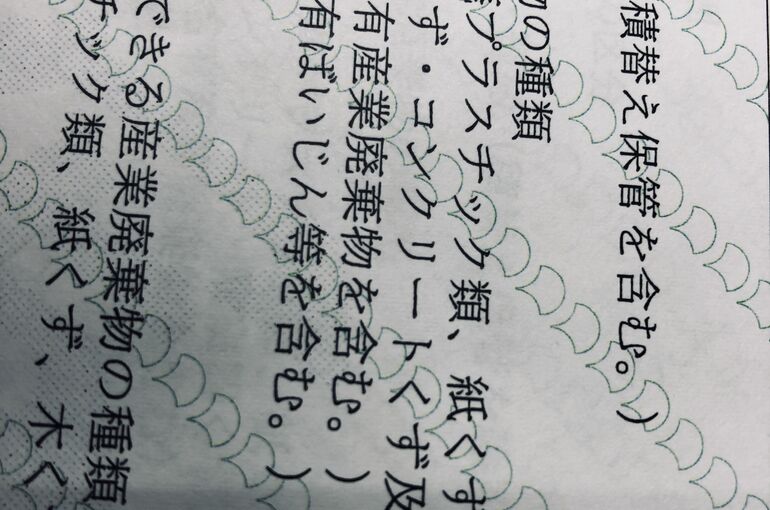 積替え保管を含む。)
物の種類
プラスチック類、紙くず
ず・コンクリートくず及
有産業廃棄物を含む。)
有ばいじん等を含む。)
できる産業廃棄物の種類
チック類、紙くず、木く